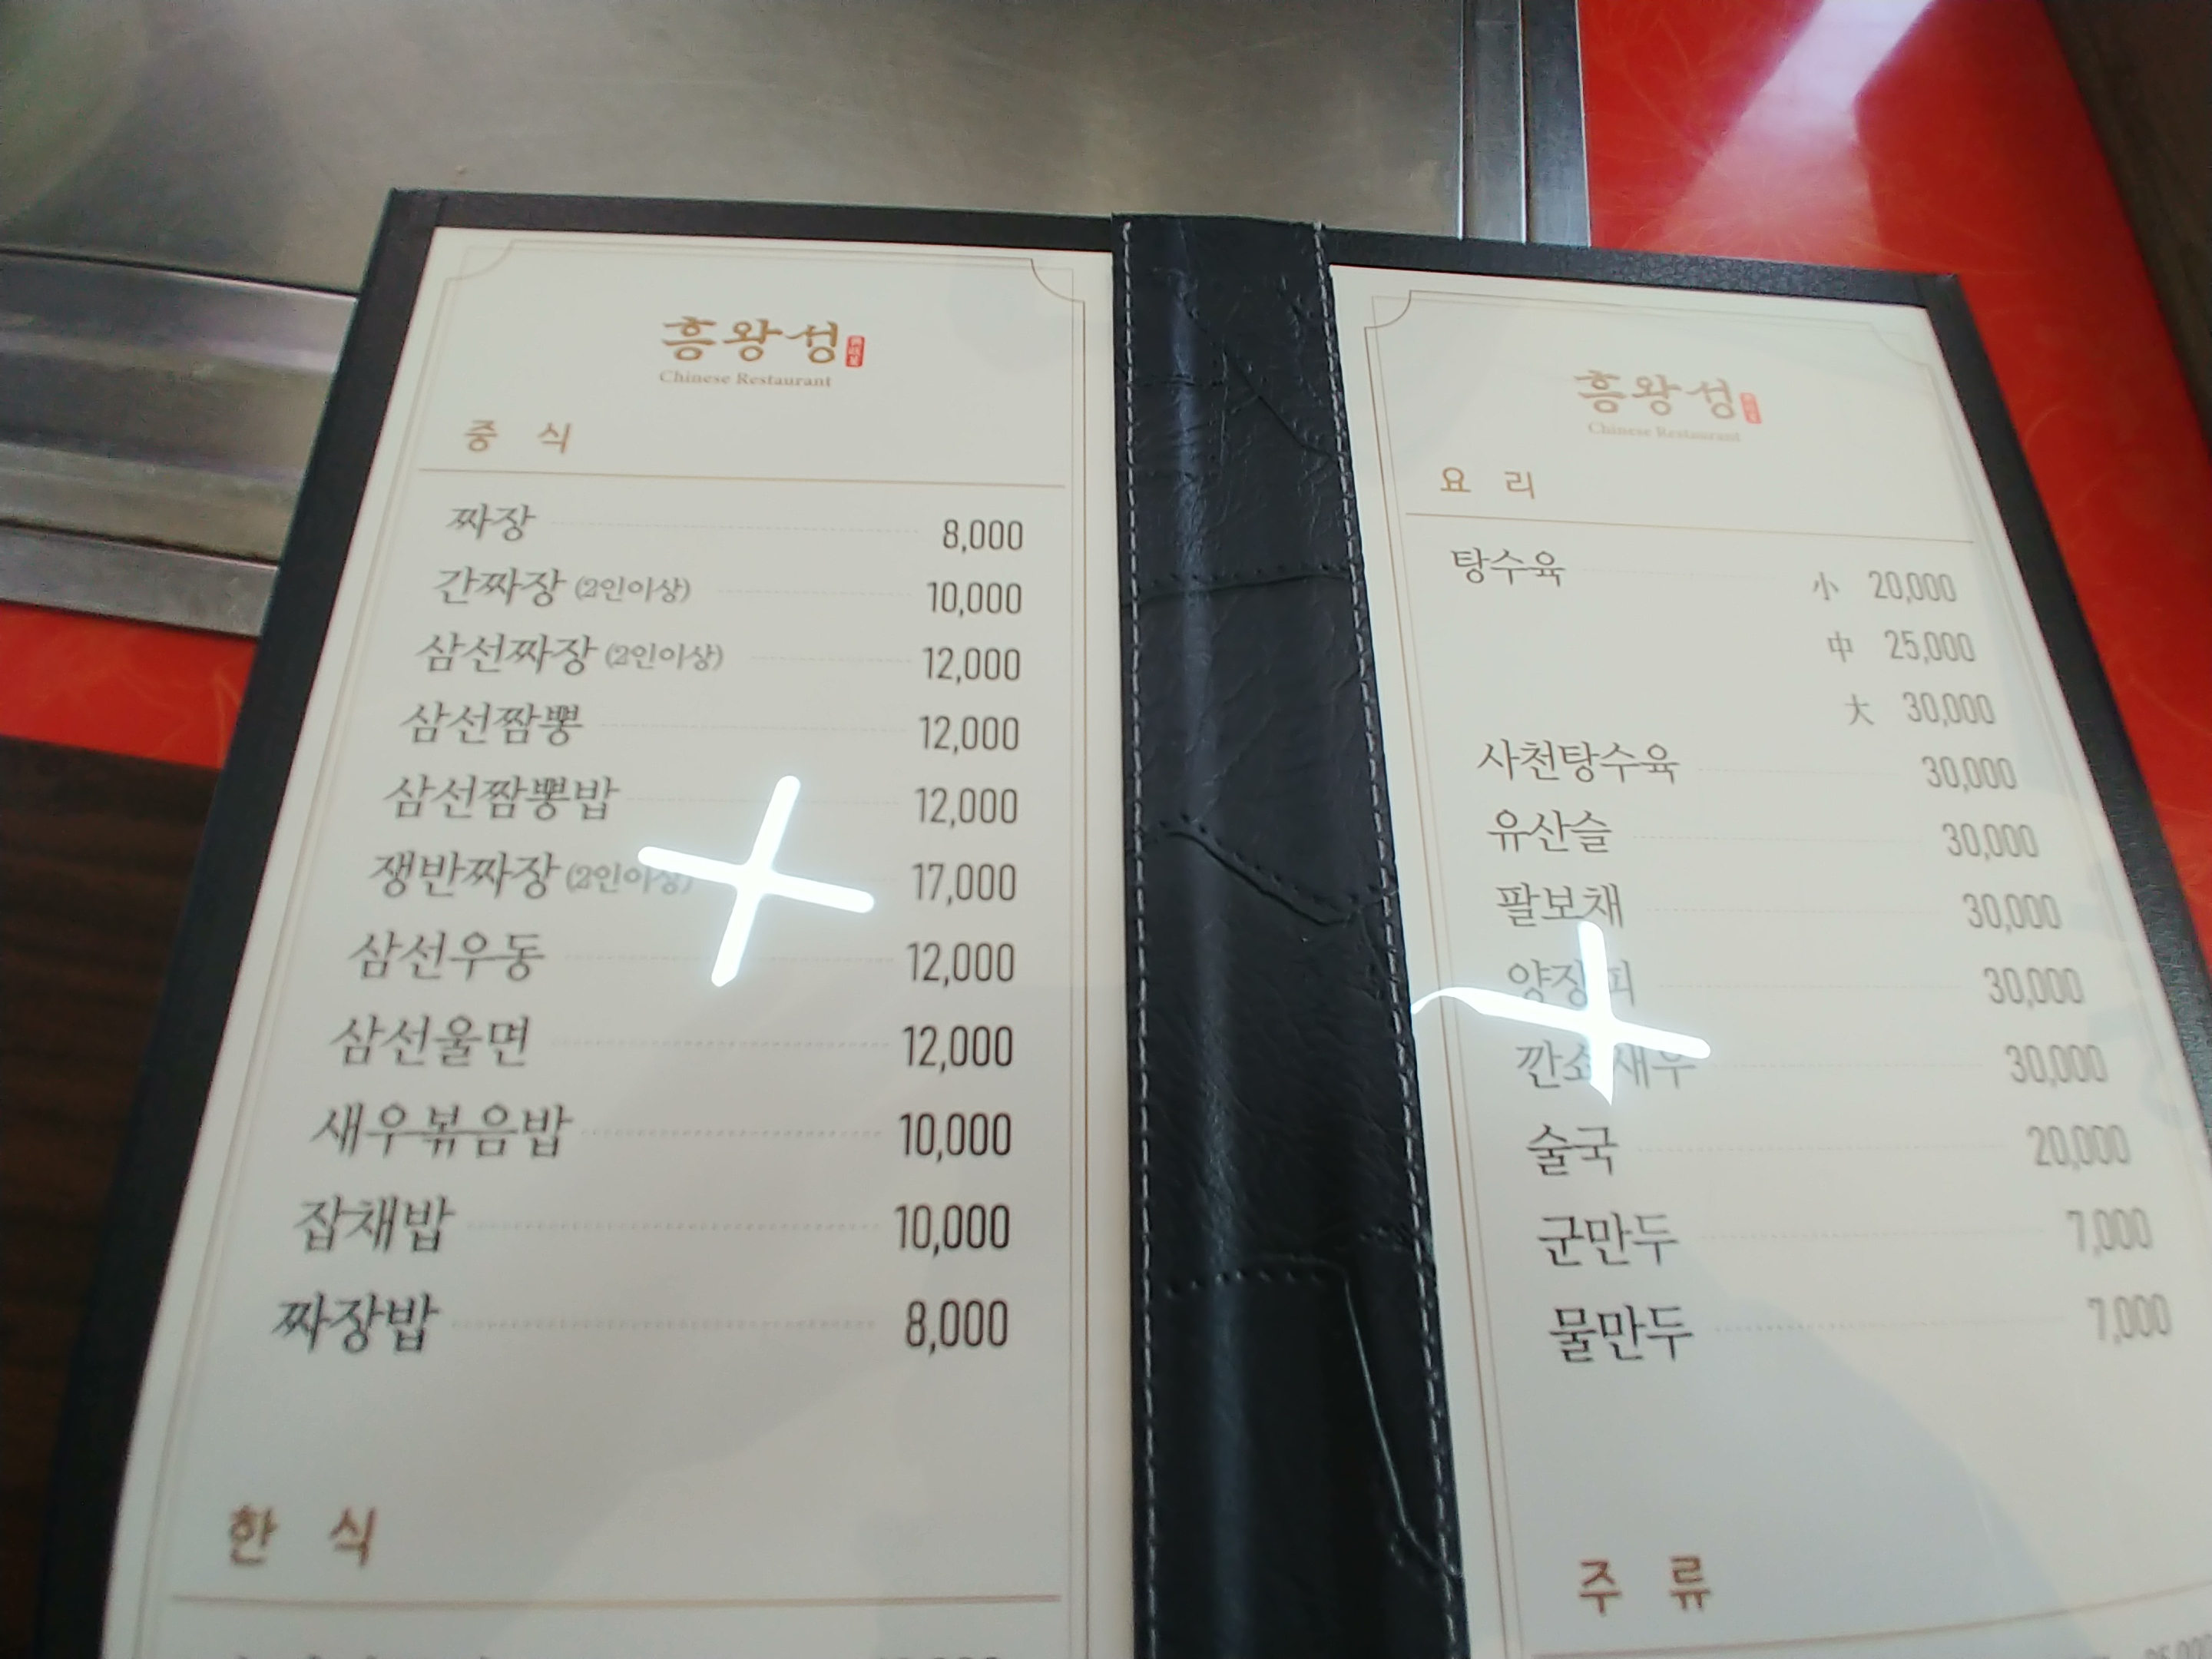 흥왕성
Chinese Restaurant
중 식
짜장 8,000
간짜장 (2인이상) 10,000
삼선짜장 (2인이상) 12,000
삼선짬뽕 12,000
삼선짬뽕밥 12,000
쟁반짜장 (2인이상) 17,000
삼선우동 12,000
삼선울면 12,000
새우볶음밥 10,000
잡채밥 10,000
짜장밥 8,000
한 식
흥왕성
Chinese Restaurant
요 리
탕수육 小 20,000
中 25,000
大 30,000
사천탕수육 30,000
유산슬 30,000
팔보채 30,000
양장피 30,000
깐쇼새우 30,000
술국 20,000
군만두 7,000
물만두 7,000
주 류